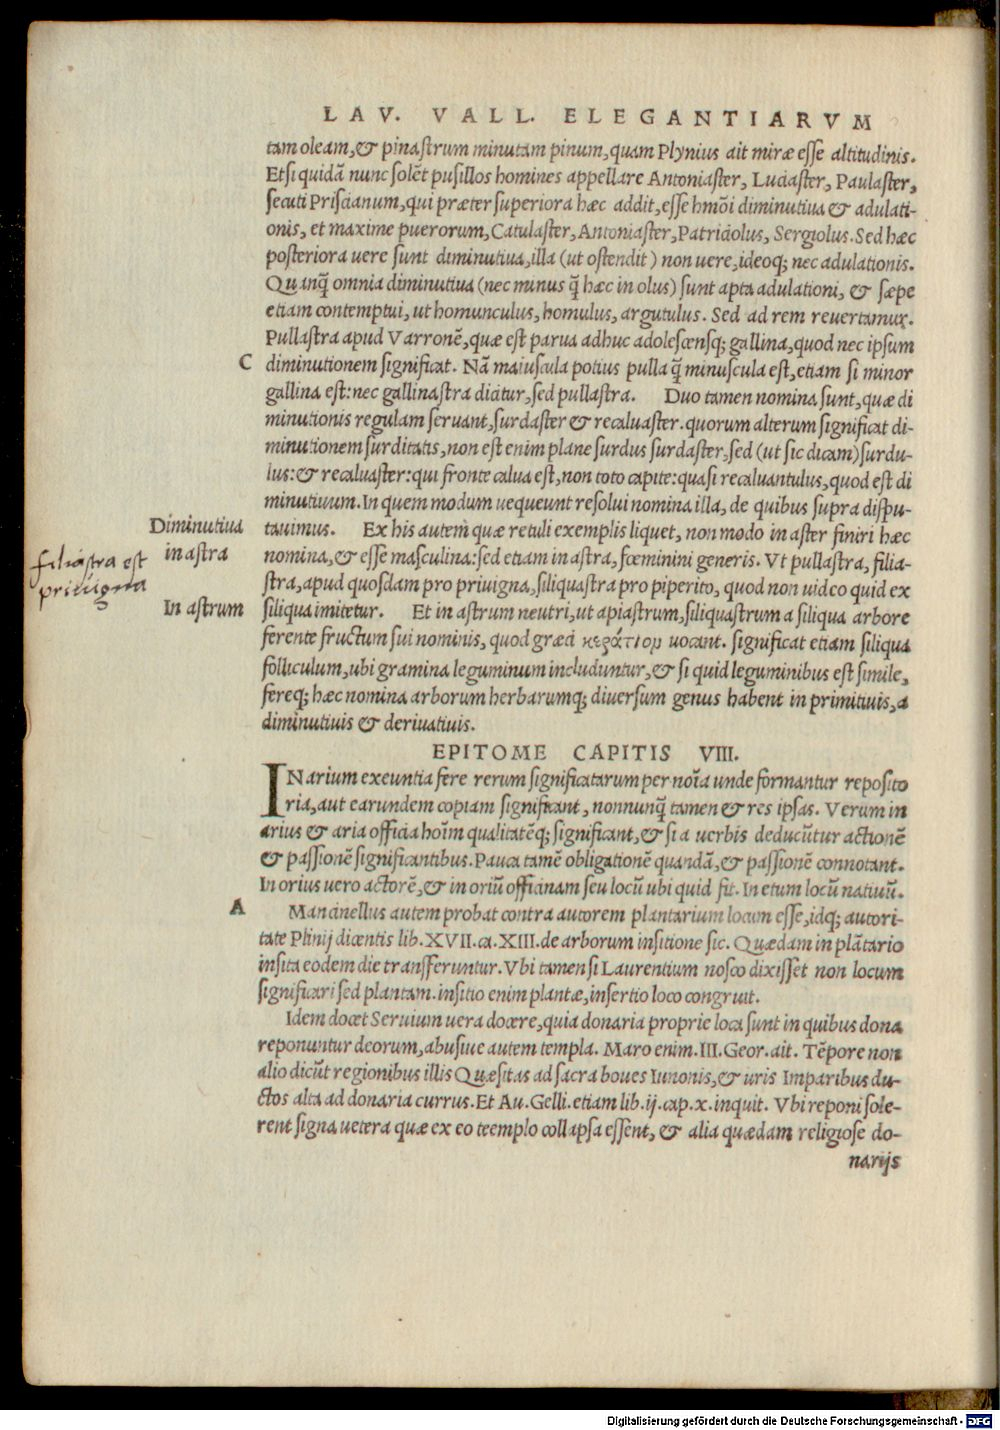 LAV. VALL. ELEGANTIARVM
tam oleam,& pinastrum minutam pinum,quam Plynius ait miræ esse altitudinis.
Etsi quidã nunc solẽt pusillos homines appellare Antoniaster, Luciaster, Paulaster,
secuti Priscianum,qui præter superiora hæc addit,esse hmõi diminutiua & adulati-
onis, et maxime puerorum,Catulaster,Antoniaster,Patriciolus, Sergiolus.Sed hæc
posteriora uere sunt diminutiua,illa (ut ostendit) non uere,ideoq; nec adulationis.
Quanq̃ omnia diminutiua (nec minus q̃ hæc in olus) sunt apta adulationi, & sæpe
etiam contemptui, ut homunculus, homulus, argutulus. Sed ad rem reuertamur.
Pullastra apud Varronẽ,quæ est parua adhuc adolescensq; gallina,quod nec ipsum
C
diminutionem significat. Nã maiuscula potius pulla q̃ minuscula est,etiam si minor
gallina est:nec gallinastra dicitur,sed pullastra. Duo tamen nomina sunt,quæ di
minutionis regulam seruant,surdaster & recaluaster.quorum alterum significat di-
minutionem surditatis,non est enim plane surdus surdaster,sed (ut sic dicam) surdu-
lus:& recaluaster:qui fronte calua est,non toto capite:quasi recaluantulus,quod est di
minutiuum.In quem modum uequeunt resolui nomina illa, de quibus supra dispu-
Diminutiua
in astra
tauimus. Ex his autem quæ retuli exemplis liquet, non modo in aster finiri hæc
nomina,& esse masculina:sed etiam in astra, fœminini generis. Vt pullastra, filia-
filiastra est
priuigna
stra,apud quosdam pro priuigna,siliquastra pro piperito, quod non uideo quid ex
In astrum
siliqua imitetur. Et in astrum neutri,ut apiastrum,siliquastrum a siliqua arbore
ferente fructum sui nominis, quod græci κεράτιον uocant. significat etiam siliqua
folliculum,ubi gramina leguminum includuntur,& si quid leguminibus est simile,
fereq; hæc nomina arborum herbarumq; diuersum genus habent in primitiuis,a
diminutiuis & deriuatiuis.
EPITOME CAPITIS VIII.
INarium exeuntia fere rerum significatarum per noĩa unde formantur reposito
ria,aut earundem copiam significant, nonnunq̃ tamen & res ipsas. Verum in
arius & aria officia hoĩm qualitatẽq; significant,& si a uerbis deducũtur actionẽ
& passionẽ significantibus.Pauca tamẽ obligationẽ quandã,& passionẽ connotant.
In orius uero actorẽ,& in oriũ officinam seu locũ ubi quid fit. In etum locũ natiuũ.
A
Mancinellus autem probat contra autorem plantarium locum esse,idq; autori-
tate Plinij dicentis lib. XVII. ca. XIII. de arborum insitione sic. Quædam in plãtario
insita eodem die transferuntur. Vbi tamen si Laurentium nosco dixisset non locum
significari sed plantam. insitio enim plantæ,insertio loco congruit.
Idem docet Seruium uera docere,quia donaria proprie loca sunt in quibus dona
reponuntur deorum,abusiue autem templa. Maro enim. III. Geor. ait. Tẽpore non
alio dicũt regionibus illis Quæsitas ad sacra boues Iunonis,& uris Imparibus du-
ctos alta ad donaria currus. Et Au. Gelli. etiam lib. ij. cap. x. inquit. Vbi reponi sole-
rent signa uetera quæ ex eo teemplo collapsa essent, & alia quædam religiose do-
narijs
Digitalisierung gefördert durch die Deutsche Forschungsgemeinschaft - DFG